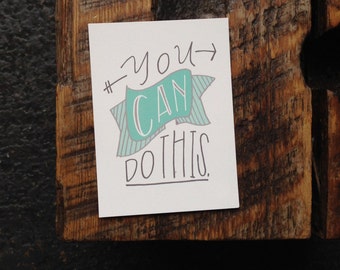 YOU
CAN
DO THIS.